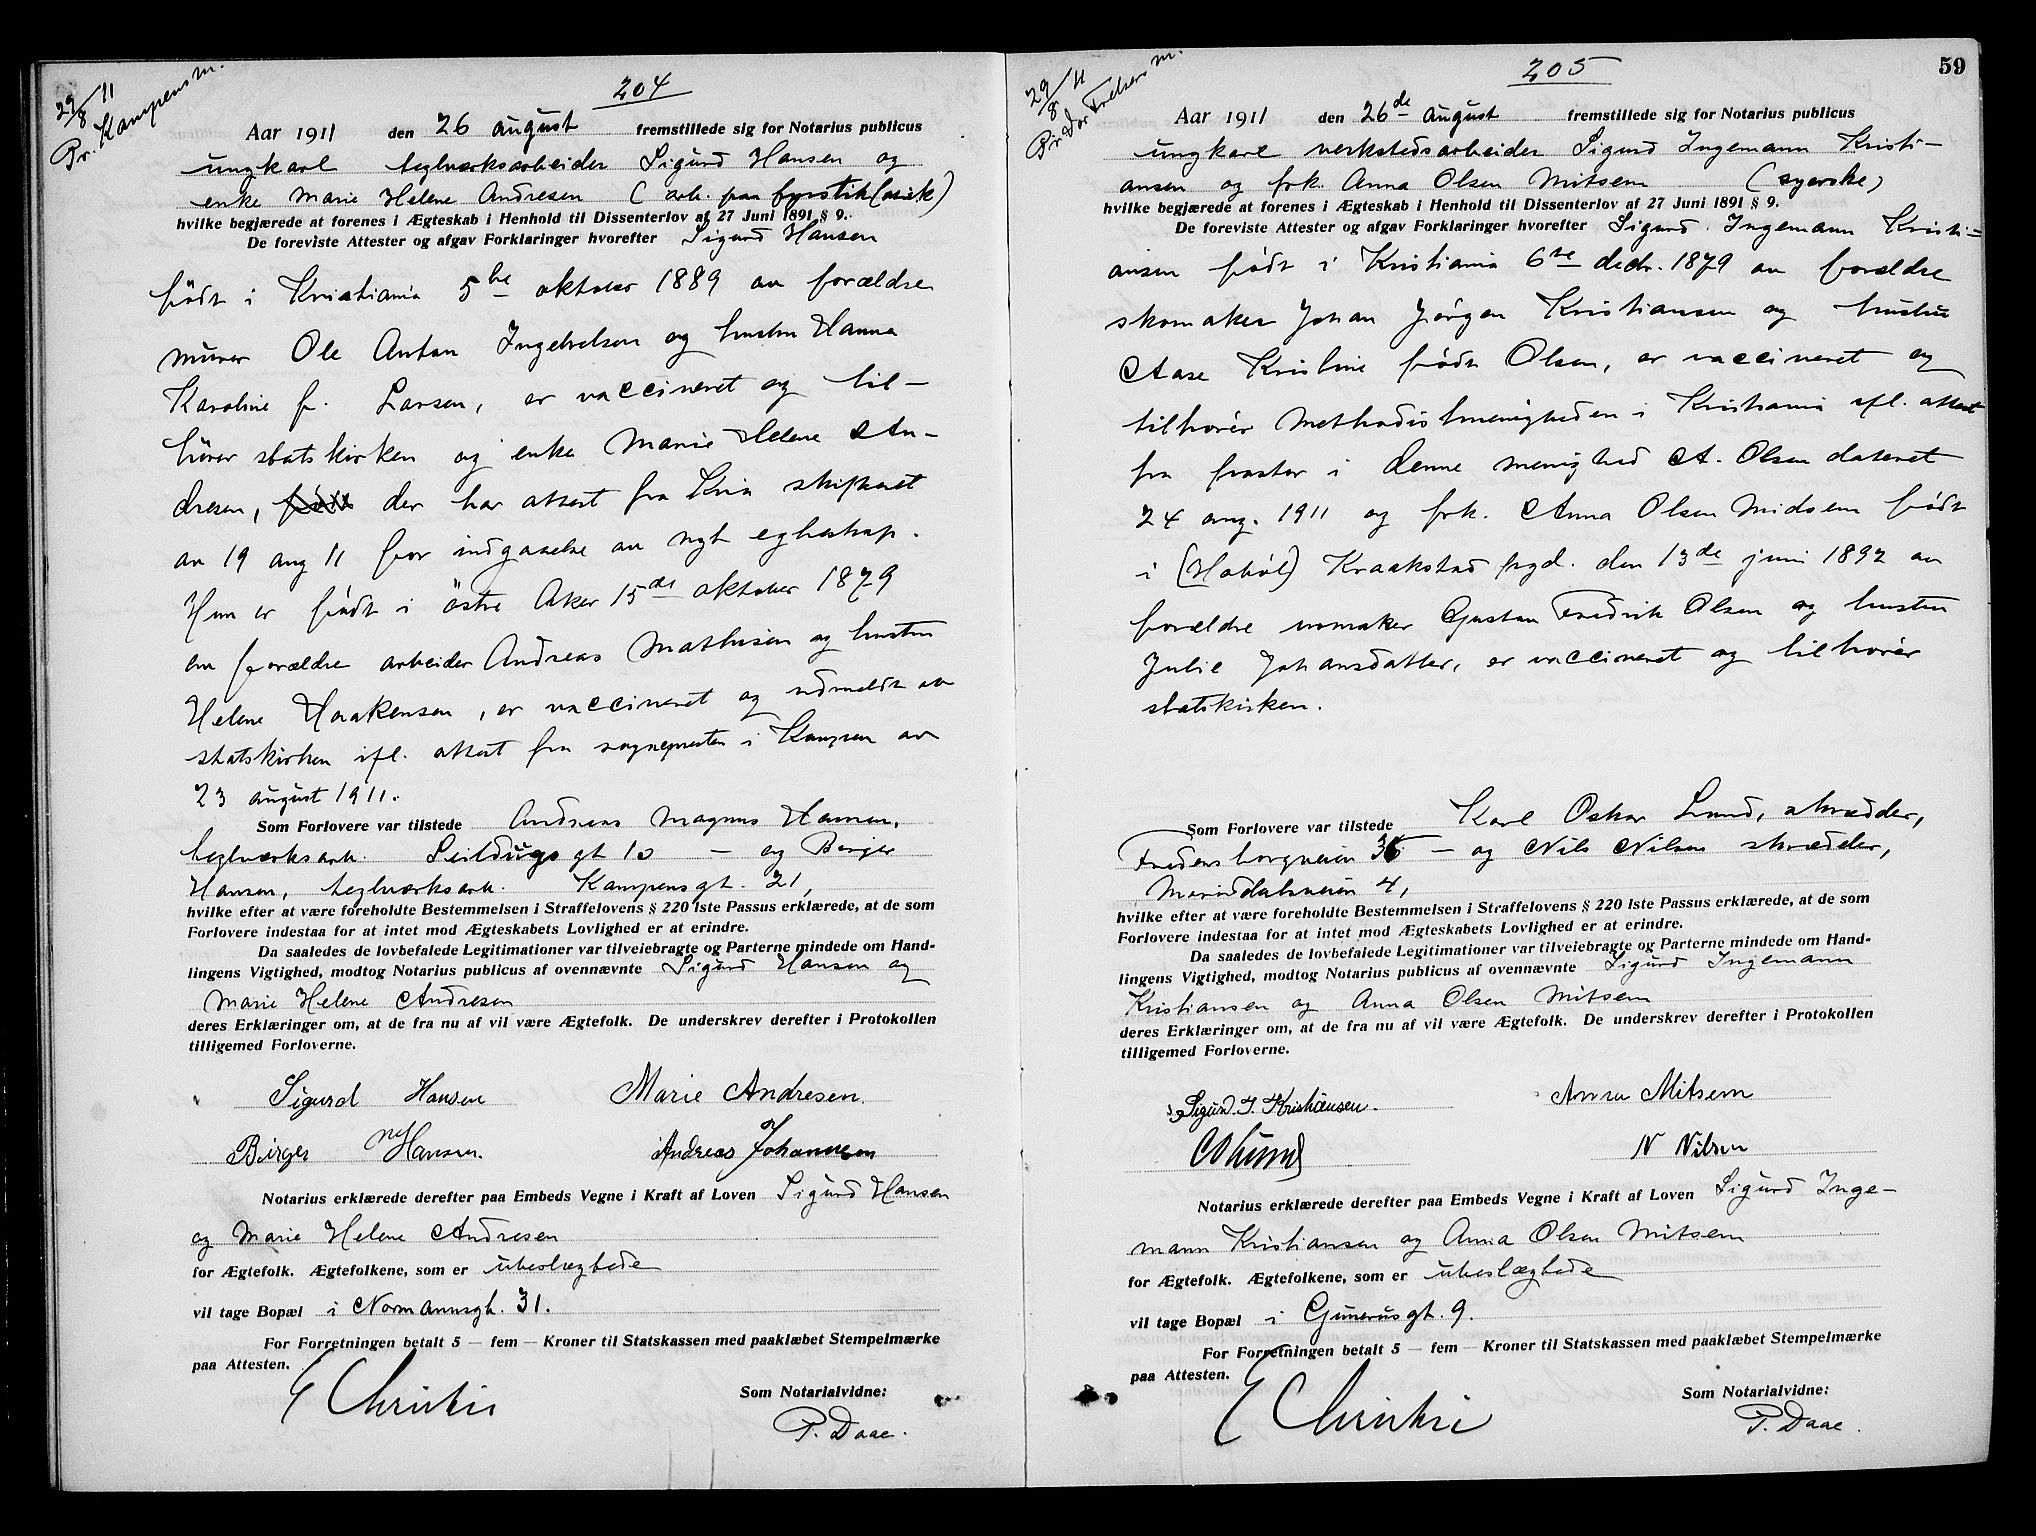 29/8 11
Pr. Kampens m.
204
Aar 1911 den 26 august fremstillede sig for Notarius publicus
ungkarl teglverksarbeider Sigurd Hansen og
enke Marie Helene Andresen (arb. paa fyrstikfabrik)
hvilke begjærede at forenes i Ægteskab i Henhold til Dissenterlov af 27 Juni 1891 § 9.
De foreviste Attester og afgav Forklaringer hvorefter Sigurd Hansen
født i Kristiania 5te oktober 1889 av forældre
murer Ole Anton Ingebretsen og hustru Hanna
Karoline f. Larsen, er vaccineret og til-
hører statskirken og enke Marie Helene An-
dresen, født der har attest fra Kria skifteret
av 19 aug 11 for indgaaelse av nyt egteskap.
Hun er født i østre Aker 15de oktober 1879
av forældre arbeider Andreas Mathisen og hustru
Helene Haakensen, er vaccineret og udmeldt av
statskirken ifl. attest fra sognepresten i Kampen av
23 august 1911.
Som Forlovere var tilstede Andreas Magnus Hansen,
teglverksarb. Seildugsgt 10 — og Birger
Hansen, teglverksarb. Kampensgt. 21,
hvilke efter at være foreholdte Bestemmelsen i Straffelovens § 220 1ste Passus erklærede, at de som
Forlovere indestaa for at intet mod Ægteskabets Lovlighed er at erindre.
Da saaledes de lovbefalede Legitimationer var tilveiebragte og Parterne mindede om Hand-
lingens Vigtighed, modtog Notarius publicus af ovennævnte Sigurd Hansen og
Marie Helene Andresen
deres Erklæringer om, at de fra nu af vil være Ægtefolk. De underskrev derefter i Protokollen
tilligemed Forloverne.
Sigurd Hansen Marie Andresen
Birger Hansen. Andreas Johannesen
Notarius erklærede derefter paa Embeds Vegne i Kraft af Loven Sigurd Hansen
og Marie Helene Andresen
for Ægtefolk. Ægtefolkene, som er ubeslegtede
vil tage Bopæl i Normannsgt. 31.
For Forretningen betalt 5 — fem — Kroner til Statskassen med paaklæbet Stempelmærke
paa Attesten.
E Christie
Som Notarialvidne:
P. Daae.
59
29/8 11
Pr. Vor Frelsers m.
205
Aar 1911 den 26de august fremstillede sig for Notarius publicus
ungkarl verkstedsarbeider Sigurd Ingemann Kristi-
ansen og frk. Anna Olsen Mitsem (syerske)
hvilke begjærede at forenes i Ægteskab i Henhold til Dissenterlov af 27 Juni 1891 § 9.
De foreviste Attester og afgav Forklaringer hvorefter Sigurd Ingemann Kristi-
ansen født i Kristiania 6te decbr. 1879 av forældre
skomaker Johan Jørgen Kristiansen og hustru
Aase Kristine født Olsen, er vaccineret og
tilhører Methodistmenigheden i Kristiania ifl. attest
fra prester i denne menighed A. Olsen dateret
24 aug. 1911 og frk. Anna Olsen Midsem født
i (Hobøl) Kraakstad prgd. den 13de juni 1892 av
forældre urmaker Gustav Fredrik Olsen og hustru
Julie Johansdatter, er vaccineret og tilhører
statskirken.
Som Forlovere var tilstede Karl Oskar Lund, skrædder,
Fredensborgveien 36 — og Nils Nilsen skrædder,
Mariddalsveien 4,
hvilke efter at være foreholdte Bestemmelsen i Straffelovens § 220 1ste Passus erklærede, at de som
Forlovere indestaa for at intet mod Ægteskabets Lovlighed er at erindre.
Da saaledes de lovbefalede Legitimationer var tilveiebragte og Parterne mindede om Hand-
lingens Vigtighed, modtog Notarius publicus af ovennævnte Sigurd Ingemann
Kristiansen og Anna Olsen Mitsem
deres Erklæringer om, at de fra nu af vil være Ægtefolk. De underskrev derefter i Protokollen
tilligemed Forloverne.
Sigurd. I. Kristiansen. Anna Mitsem
N Nilsen
Notarius erklærede derefter paa Embeds Vegne i Kraft af Loven Sigurd Inge-
mann Kristiansen og Anna Olsen Mitsem
for Ægtefolk. Ægtefolkene, som er ubeslægtede
vil tage Bopæl i Gunerusgt. 9.
For Forretningen betalt 5 — fem — Kroner til Statskassen med paaklæbet Stempelmærke
paa Attesten.
E Christie
Som Notarialvidne:
P. Daae.